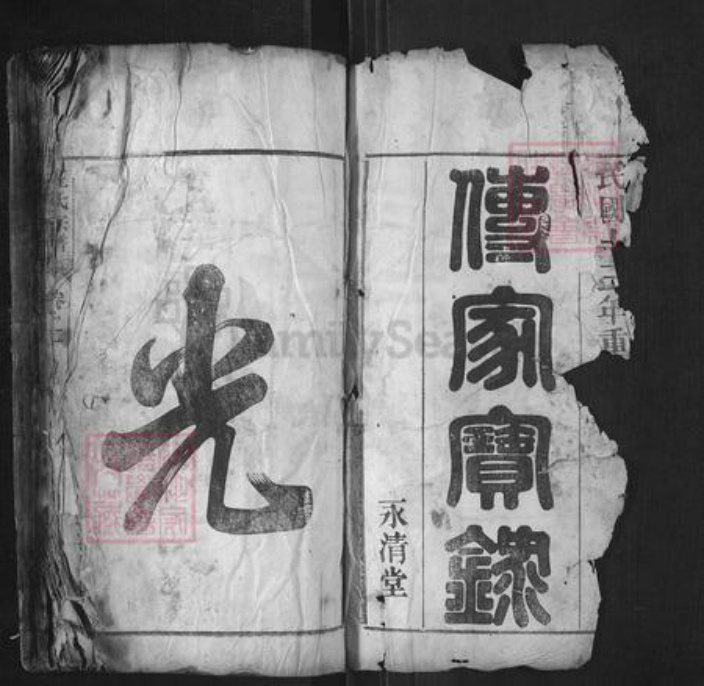 民國十三年重
傳家寶錄
永清堂
光
FamilySea